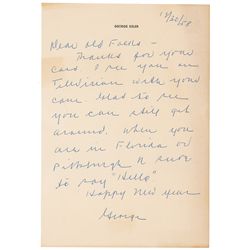 GEORGE SISLER
12/20/58
Dear old Folks -
Thanks for your
card I see you on
Television with your
cane. Glad to see
you can still get
around. When you
are in Florida or
Pittsburgh be sure
to say "Hello"
Happy New Year
George